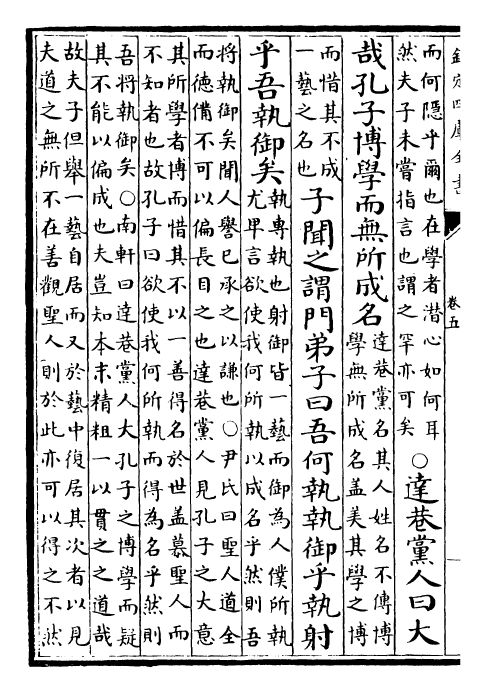 欽定四庫全書
卷五
而何隱乎爾也在學者潛心如何耳
然夫子未嘗指言也謂之罕亦可矣
○達巷黨人曰大
哉孔子博學而無所成名
達巷黨名其人姓名不傳博
學無所成名盖美其學之博
而惜其不成
一藝之名也
子聞之謂門弟子曰吾何執執御乎執射
乎吾執御矣
執專執也射御皆一藝而御為人僕所執
尤卑言欲使我何所執以成名乎然則吾
將執御矣聞人譽已承之以謙也○尹氏曰聖人道全
而德備不可以偏長目之也達巷黨人見孔子之大意
其所學者博而惜其不以一善得名於世盖慕聖人而
不知者也故孔子曰欲使我何所執而得為名乎然則
吾將執御矣○南軒曰達巷黨人大孔子之博學而疑
其不能以偏成也夫豈知本末精粗一以貫之之道哉
故夫子但舉一藝自居而又於藝中復居其次者以見
夫道之無所不在善觀聖人則於此亦可以得之不然